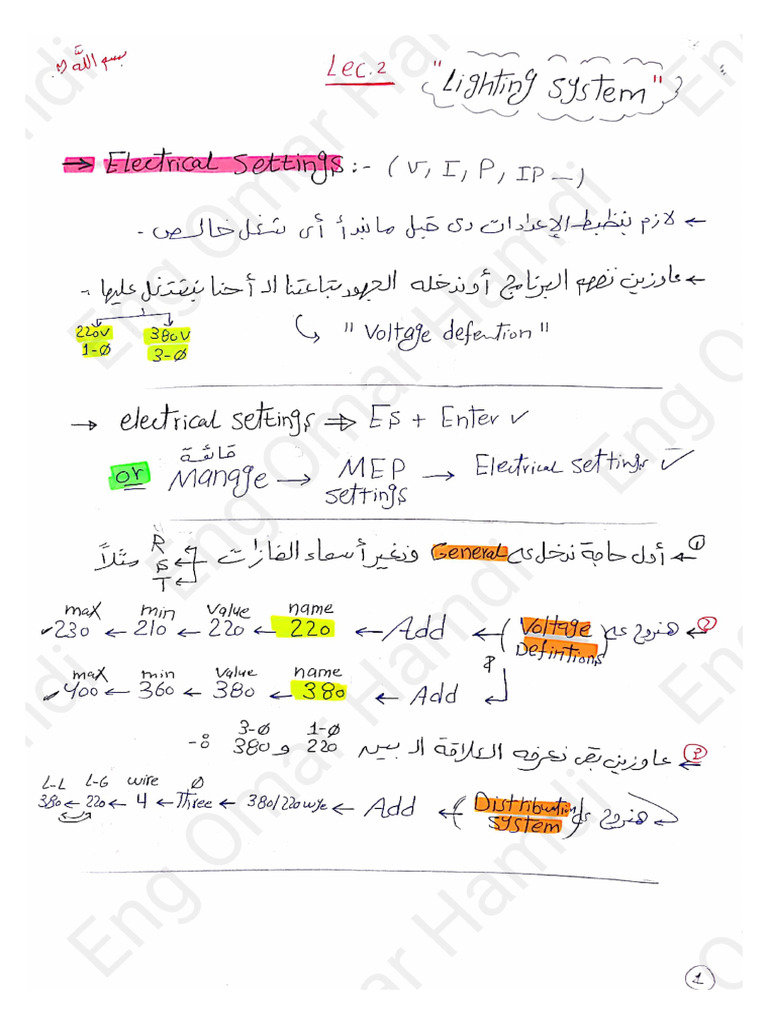 بسم الله
Lec.2 "Lighting system"
→ Electrical settings :- ( V, I, P, IP --- )
← لازم نظبط الإعدادات دى قبل ما نبدأ أى شغل خالص -
← عاوزين نفهم البرنامج أو ندخله الجهود بتاعتنا الـ أحنا بنشتغل عليها -
220V 1-Ø
380V 3-Ø
"Voltage defention"
→ electrical settings ⇒ ES + Enter ✓
or قائمة Manage → MEP settings → Electrical settings ✓
① ← أول حاجة ندخل على General ونغير أسماء الفازات R S T مثلاً
② ← هنروح على (Voltage Defintions) ← Add ← name 220 ← Value 220 ← min 210 ← max 230 ✓
& ← Add ← name 380 ← Value 380 ← min 360 ← max 400 ✓
③ ← عاوزين بقى نعرفه العلاقة الـ بين 1-Ø 220 و 3-Ø 380 :-
هنروح على (Distribution system) ← Add ← 380/220 wye ← Ø Three ← wire 4 ← L-G 220 ← L-L 380
1
Eng Omar Hamdi